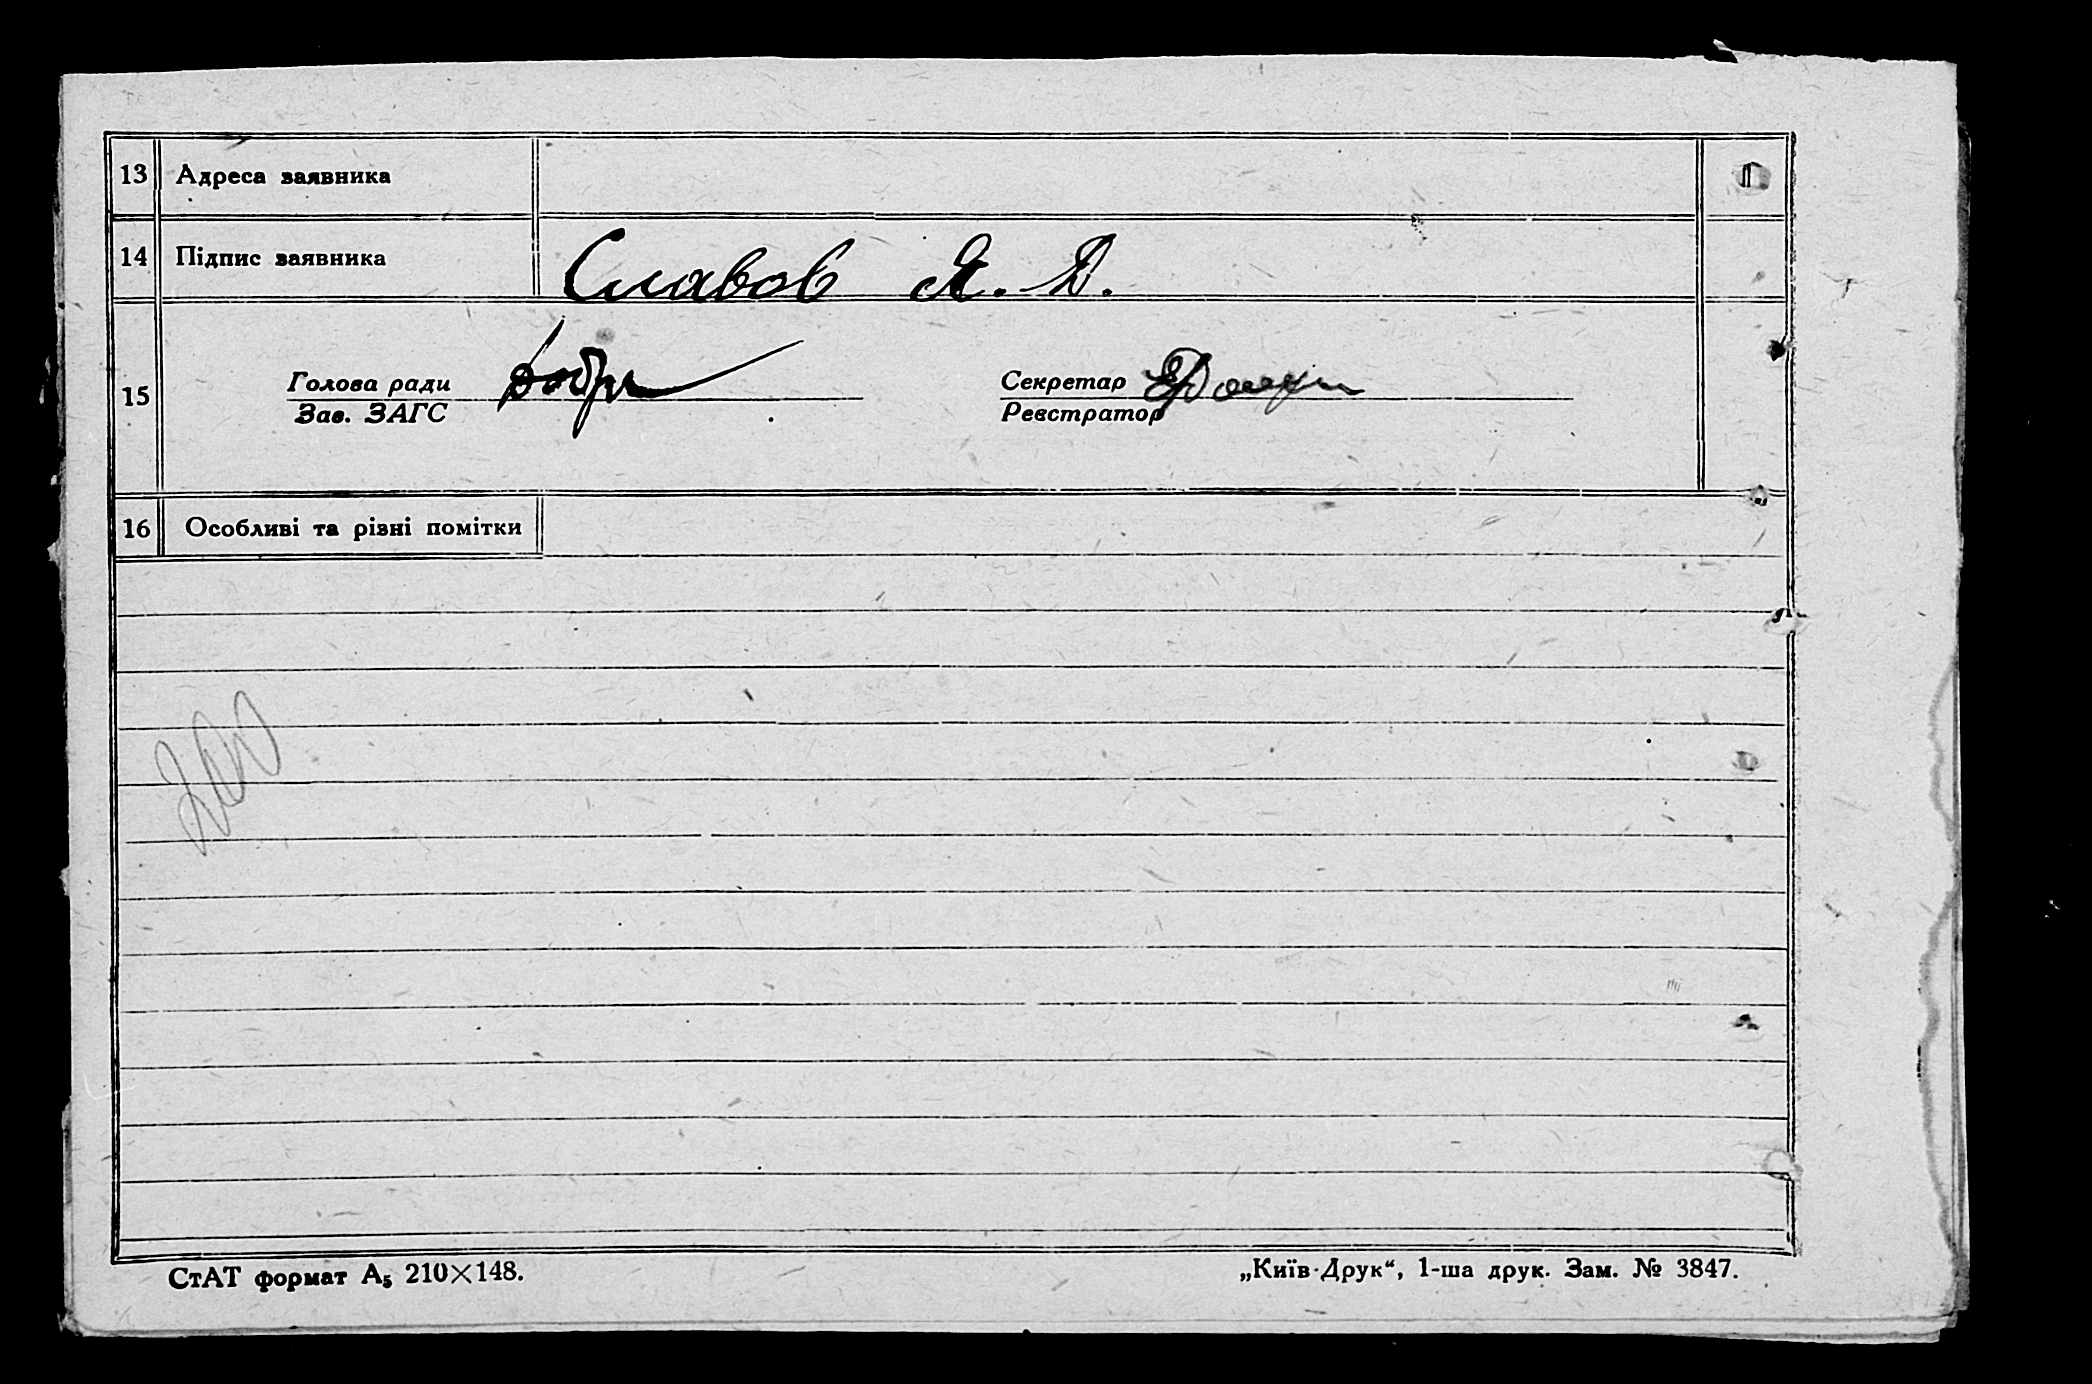 13 Адреса заявника
14 Підпис заявника Славов Я. Д.
15 Голова ради Секретар
Зав. ЗАГС Реєстратор
16 Особливі та різні помітки
СтАТ формат А₅ 210×148. „Київ-Друк“, 1-ша друк. Зам. № 3847.